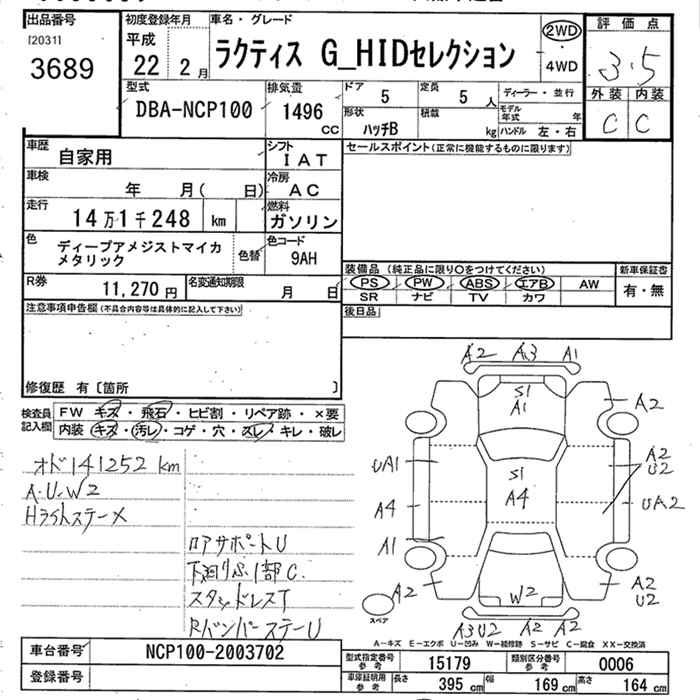 出品番号
[20311
3689
初度登録年月
平成
22 2月
車名・グレード
ラクティス G_HIDセレクション
2WD
・
4WD
評価点
3.5
外装 内装
C C
型式
DBA-NCP100
排気量
1496
CC
ドア
5
定員
5人
形状
ハッチB
積載
kg
ディーラー・並行
モデル年式 年
ハンドル 左・右
車歴
自家用
シフト
IAT
車検
年 月( 日)
冷房
AC
走行
14万1千248 km
燃料
ガソリン
色
ディープアメジストマイカ
メタリック
色替
色コード
9AH
R券
11,270円
名変通知期限
月 日
セールスポイント(正常に機能するものに限ります)
装備品 (純正品に限り○をつけてください)
PS PW ABS エアB AW
SR ナビ TV カワ
新車保証書
有・無
後日品
注意事項申告欄(不具合内容等は具体的に記入して下さい)
修復歴 有〔箇所 〕
検査員
記入欄
FW キズ・飛石・ヒビ割・リペア跡・×要
内装 キズ・汚レ・コゲ・穴・スレ・キレ・破レ
オド141252 km
A・U・W2
Hライトステーメ
ロアサポートU
下廻りS1部C.
スタッドレスT
RバンパーステーU
A2 A3 A1
S1
A1
A2
UA1
A2
U2
S1
A4
A4
UA2
A1
A2
A2
U2
W2
スペア
A3U2 A2 A2
A-キズ E-エクボ U-凹み W-補修跡 S-サビ C-腐食 XX-交換済
車台番号
NCP100-2003702
登録番号
型式指定番号
参考
15179
類別区分番号
参考
0006
車庫証明用
参考
長さ
395 cm
幅
169 cm
高さ
164 cm